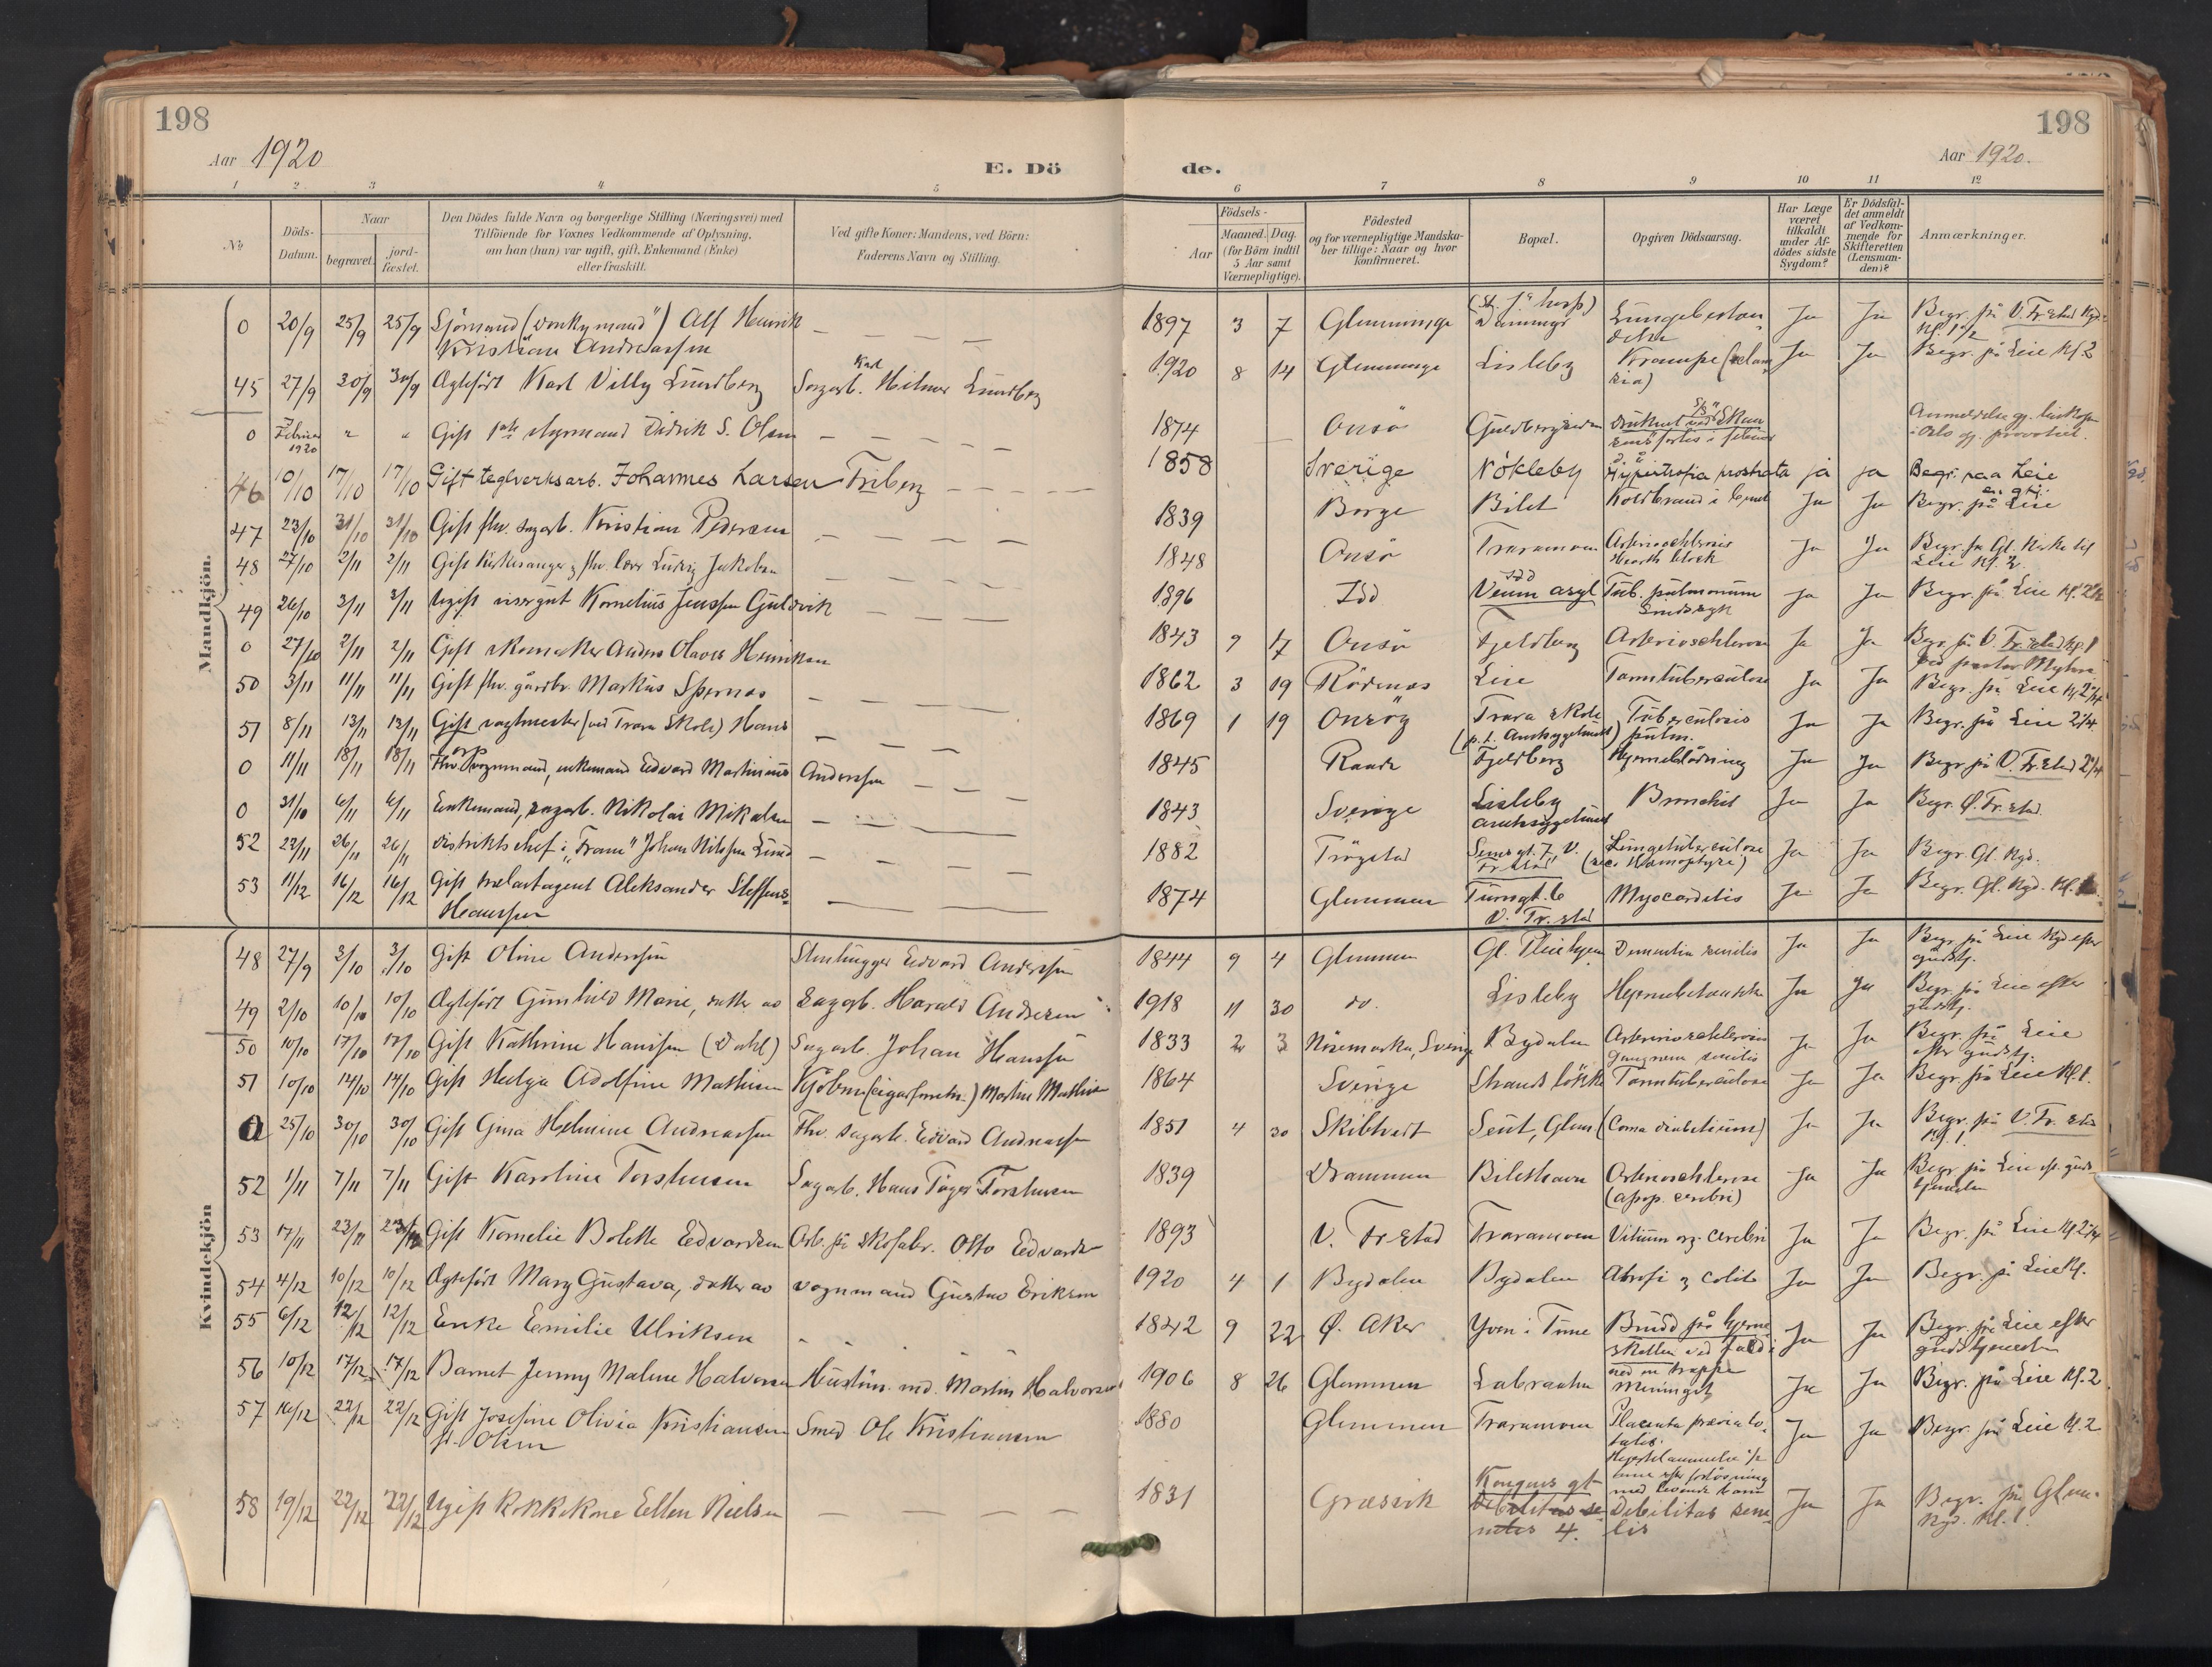 198
198
Aar 1920
Aar 1920.
E. Dö
de.
1 2 3 4 5 6 7 8 9 10 11 12
No
Döds-
Datum.
Naar
begravet.
jord-
fæstet.
Den Dödes fulde Navn og borgerlige Stilling (Næringsvei) med
Tilföiende for Voxnes Vedkommende af Oplysning,
om han (hun) var ugift, gift, Enkemand (Enke)
eller fraskilt.
Ved gifte Koner: Mandens, ved Börn:
Faderens Navn og Stilling.
Födsels-
Aar
Maaned.
Dag.
(for Börn indtil
5 Aar samt
Værnepligtige).
Födested
og for værnepligtige Mandska-
ber tillige: Naar og hvor
konfirmeret.
Bopæl.
Opgiven Dödsaarsag.
Har Læge
været
tilkaldt
under Af-
dödes sidste
Sygdom?
Er Dödsfal-
det anmeldt
af Vedkom-
mende for
Skifteretten
(Lensman-
den)?
Anmærkninger.
Mandkjön.
0 20/9 25/9 25/9 Sjömand ("Donkymand") Alf Henrik — — — — 1897 3 7 Glemminge
Kristian Andreassen
Ja Ja Begr. på V. Fr.stad Kgd.
Kl. 1 1/2
Karl
45 27/9 30/9 30/9 Ægtefödt Karl Villy Lundberg Sagarb. Hilmar Lundberg 1920 8 14 Glemminge Lisleby Krampe Ja Ja Begr. på Leie Kl. 2
0 Februar " " Gift Styrmand Didrik S. Olsen — — — — 1874 — Onsö
1920
46 10/10 17/10 17/10 Gift teglverksarb. Johannes Larsen Friberg — — — — 1858 Sverige Nökleby Hypertrofia prostrata ja ja Begr. paa Leie
47 23/10 31/10 31/10 Gift fhv. sagarb. Kristian Pedersen — — — — 1839 Borge Bilet Koldbrand i Ja Ja Begr. på Leie
48 27/10 2/11 2/11 Gift Kirkesanger og fhv. lærer Ludvig Jakobsen — — — — 1848 Onsö Traramoen Arteriosclerosis Ja Ja Begr. fra Gl. Kirke til
Hearth block
Leie Kl. 2
49 26/10 3/11 3/11 Ugift visergut Kornelius Jenssen Guldvik — — — 1896 Idd Veum asyl Tub. pulmonum Ja Ja Begr. på Leie Kl. 2 1/2
Sindssyk
0 27/10 2/11 2/11 Gift skomaker Anders Olaves Henriksen 1843 9 17 Onsö Fjeldberg Arteriosclerose Ja Ja Begr. på V. Fr.stad Kl. 1
50 3/11 11/11 11/11 Gift fhv. gårdbr. Markus Spernæs — — — — 1862 3 19 Rödenæs Leie Tarmtuberculose Ja Ja Begr. på Leie Kl. 2 1/4
51 8/11 13/11 13/11 Gift vagtmester (ved Trara Skole) Hans — — — — 1869 1 19 Onsöy Trara skole Tuberculosis Ja Ja Begr. på Leie 2 1/4.
(p. t. Amtssygehuset) pulm.
0 11/11 18/11 18/11 Fhv. vognmand, enkemand Edvard Martinius Andersen — — — 1845 Raade Fjeldberg Hjerneblödning Ja Ja Begr. på V. Fr.stad 2 1/4
0 31/10 6/11 6/11 Enkemand, sagarb. Nikolai Mikalsen — — — — 1843 Sverige Lisleby Bronchit Ja Ja Begr. Ø. Fr.stad.
amtssygehuset
52 22/11 26/11 26/11 Distriktschef i "Fram" Johan Nilssen Lund — — — — 1882 Trögstad Lungetuberculose Ja Ja Begr. Gl. Kgd.
Fr.stad (Hæmoptyse)
53 11/12 16/12 16/12 Gift trælastagent Aleksander Steffens- — — — 1874 Glemmen Turngt. 6 Myocarditis Ja Ja Begr. Gl. Kgd. Kl.
Hanssen
V. Fr.stad
Kvindekjön
48 27/9 3/10 3/10 Gift Oline Anderssen Stenhugger Edvard Anderssen 1844 9 4 Glemmen Gl. Pleiehjem Dementia senilis Ja Ja Begr. på Leie Kgd. efter
gudstj.
49 2/10 10/10 10/10 Ægtefödt Gunhild Marie, datter av Sagarb. Harald Andresen 1918 11 30 do. Lisleby Ja Ja Begr. på Leie efter
gudstj.
50 10/10 17/10 17/10 Gift Kathrine Hanssen (Dahl) Sagarb. Johan Hanssen 1833 2 3 Nösemarka, Sverige Bydalen Arteriosclerosis Ja Ja Begr. på Leie
Gangræna senilis
efter gudstj.
51 10/10 14/10 14/10 Gift Helga Adolfine Mathisen Kjöbm. (cigarforretn.) Martin Mathisen 1864 Sverige Strandlökka Tarmtuberculose Ja Ja Begr. på Leie Kl. 1.
0 25/10 30/10 30/10 Gift Gina Helmine Andreassen Fhv. sagarb. Edvard Andreassen 1851 4 30 Skibtvedt Seut, Glem. (Coma diabeticum) Ja Ja Begr. på V. Fr.stad
Kl. 1.
52 1/11 7/11 7/11 Gift Karoline Torshusen Sagarb. Hans Töger Torshusen 1839 Drammen Bilethaven Arteriosclerose Ja Ja Begr. på Leie ef. guds-
(apop. cerebri)
tjenesten
53 17/11 23/11 23/11 Gift Kornelie Bolette Edvardsen Arb. på skofabr. Otto Edvardsen 1893 V. Fr.stad Traramoen Vitium org. cerebri Ja Ja Begr. på Leie Kl. 2 1/4
54 4/12 10/12 10/12 Ægtefödt Mary Gustava, datter av vognmand Gustav Eriksen 1920 4 1 Bydalen Bydalen Atrofi og colit Ja Ja Begr. på Leie Kl.
55 6/12 12/12 12/12 Enke Emilie Ulriksen — — 1842 9 22 Ø. Aker Yven i Tune Brudd på hjerne Ja Ja Begr. på Leie efter
skallen ved fald
gudstjenesten
ned en trappe
56 10/12 17/12 17/12 Barnet Jenny Malene Halvorsen Hustöm. md. Martin Halvorsen 1906 8 26 Glemmen Labraaten Meningit Ja Ja Begr. på Leie Kl. 2
57 16/12 22/12 22/12 Gift Josefine Olivia Kristiansen Smed Ole Kristiansen 1880 Glemmen Traramoen Placenta prævia to- Ja Ja Begr. på Leie Kl. 2
f. Olsen
talis.
efter forlösning
med levende barn
58 19/12 22/12 22/12 Ugift Kokkekone Ellen Nielsen — — — — 1831 Græsvik Kongens gt Debilitas seni- Ja Ja Begr. på Glem.
Debilitas se-
nilis 4.
lis
Kgd. Kl. 1.